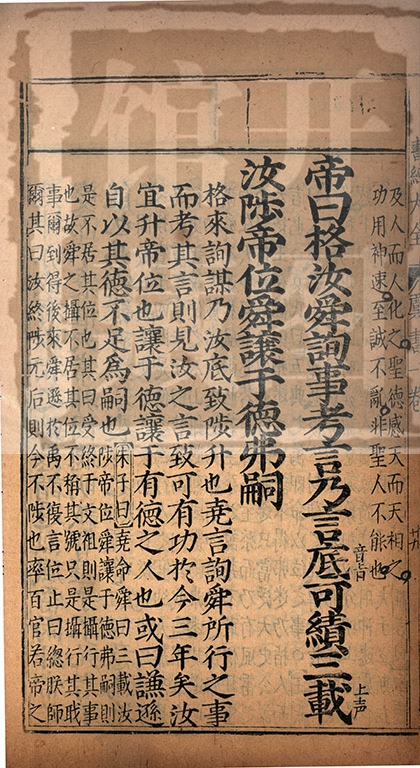 及人而人化之聖德感天而天相之
功用神速至誠不亂非聖人不能也
帝曰格汝舜詢事考言乃言底可績三載
音旨
上声
汝陟帝位舜讓于德弗嗣
格來詢謀乃汝底致陟升也堯言詢舜所行之事
而考其言則見汝之言致可有功於今三年矣汝
宜升帝位也讓于德讓于有德之人也或曰謙遜
自以其德不足爲嗣也
朱子曰堯命舜曰三載汝
陟帝位舜讓于德弗嗣則
是不居其位也其曰受終于文祖則是攝行其事
也故舜之攝不居其位不稱其號只是攝行其職
事爾到得後來舜遜於禹不復言位止曰總朕師
爾其曰汝終陟元后則今不陟也率百官若帝之